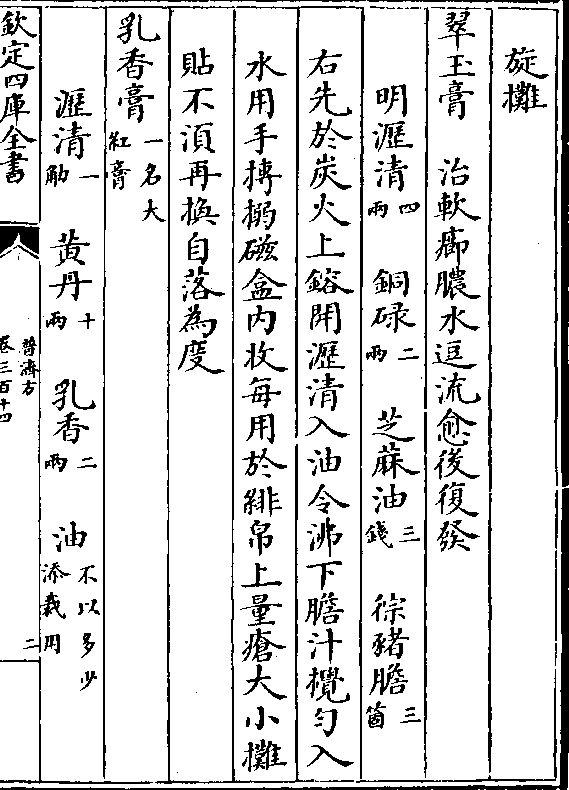 旋攤
翠玉膏　治軟癤膿水逗流愈後復發
明瀝清四兩　銅碌二兩　芝蔴油三錢　㹥猪膽三箇
右先於炭火上鎔開瀝清入油令沸下膽汁攪勻入
水用手摶搦磁盒内收每用於緋帛上量瘡大小攤
貼不湏再換自落為度
乳香膏一名大紅膏
瀝清一觔　黄丹十兩　乳香二兩　油不以多少添減用
欽定四庫全書
普濟方
卷三百十四
二